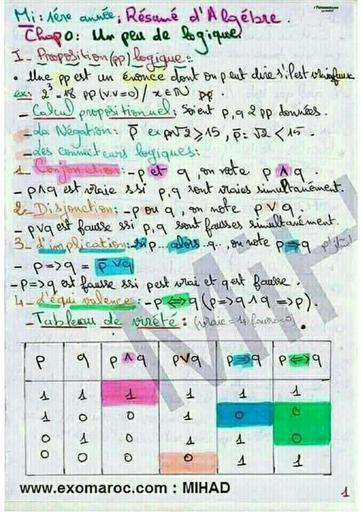 Mi: 1ère année; Résumé d'Algèbre.
Chap0: Un peu de logique
I - Proposition (pp) logique:
• Une pp est un énoncé dont on peut dire s'il est vrai faux
ex: 2³-18 pp (v.v=0) / x∈ℕ pp
- Calcul propositionnel: soient p, q 2 pp données.
- La Négation: p̅ ex p: √2 > 15, p̅: √2 < 15.
- Les connecteurs logiques:
1. Conjonction: - p et q, on note p ∧ q.
- p∧q est vraie ssi p, q sont vraies simultanément.
2. Disjonction: - p ou q, on note p ∨ q.
- p∨q est fausse ssi p, q sont fausses simultanément.
3 - L'implication: si p... alors q.. on note p => q
- p => q = p̅ ∨ q
- p => q est fausse ssi p est vrai et q est fausse.
4 - L'équivalence: - p <=> q (p => q ∧ q => p).
- Tableau de vérité: (vraie = 1, fausse = 0)
p q p∧q p∨q p=>q p<=>q
1 1 1 1 1 1
1 0 0 1 0 0
0 1 0 1 1 0
0 0 0 0 1 1
www.exomaroc.com : MIHAD
1